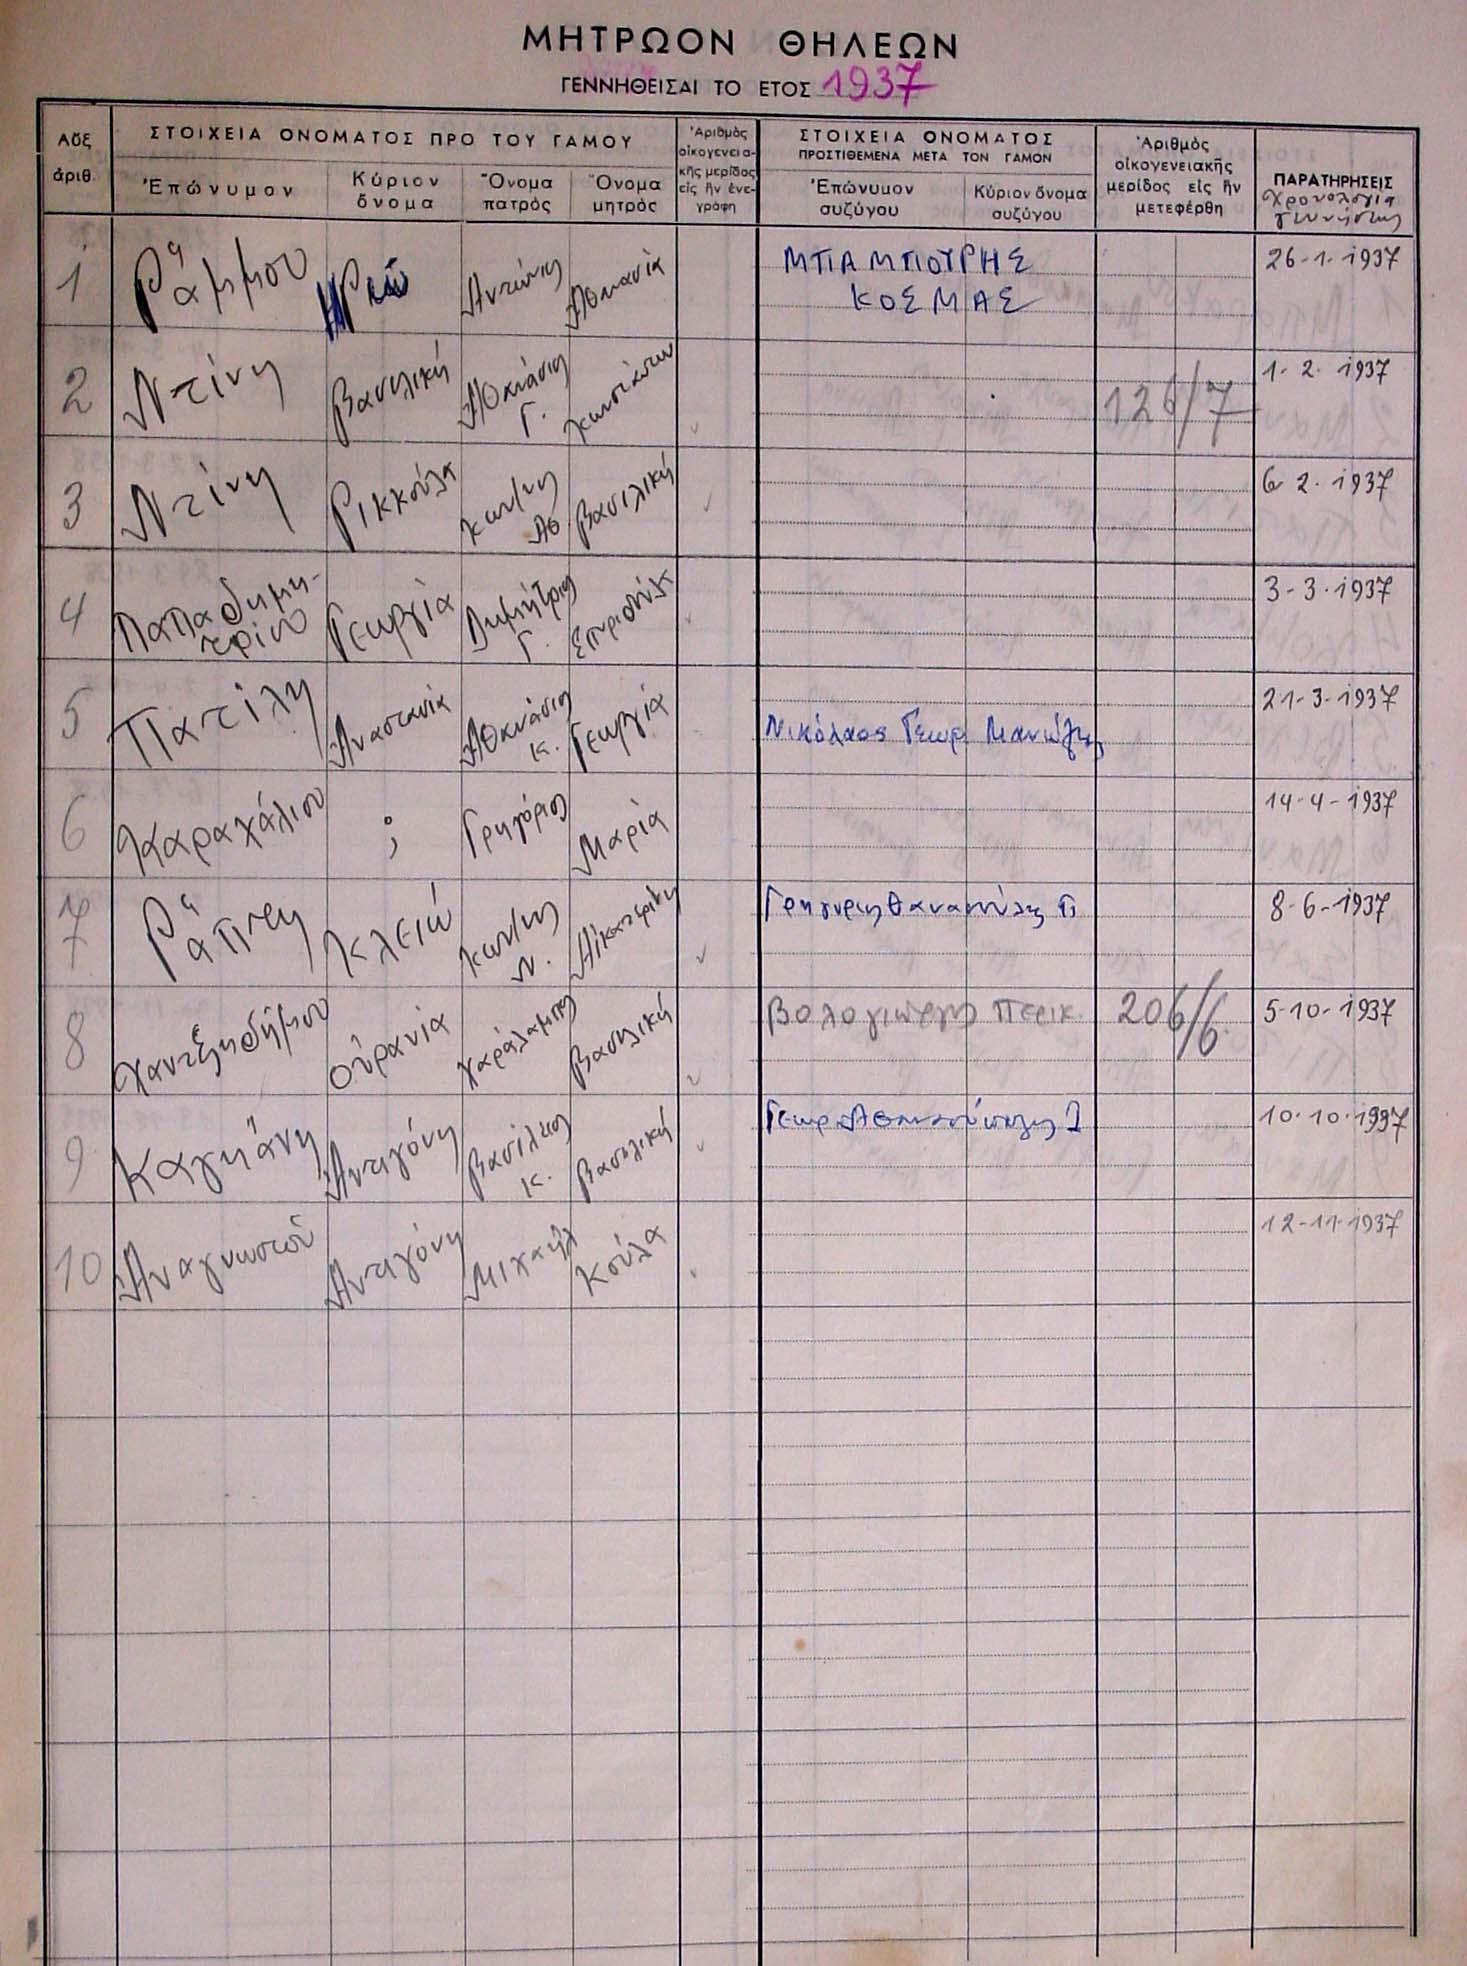 ΜΗΤΡΩΟΝ ΘΗΛΕΩΝ
ΓΕΝΝΗΘΕΙΣΑΙ ΤΟ ΕΤΟΣ 1937
Αὔξ ἀριθ.
ΣΤΟΙΧΕΙΑ ΟΝΟΜΑΤΟΣ ΠΡΟ ΤΟΥ ΓΑΜΟΥ
Ἐπώνυμον
Κύριον ὄνομα
Ὄνομα πατρὸς
Ὄνομα μητρὸς
Ἀριθμὸς οἰκογενεια-
κῆς μερίδος
εἰς ἣν ἐνε-
γράφη
ΣΤΟΙΧΕΙΑ ΟΝΟΜΑΤΟΣ
ΠΡΟΣΤΙΘΕΜΕΝΑ ΜΕΤΑ ΤΟΝ ΓΑΜΟΝ
Ἐπώνυμον συζύγου
Κύριον ὄνομα συζύγου
Ἀριθμὸς
οἰκογενειακῆς
μερίδος εἰς ἣν
μετεφέρθη
ΠΑΡΑΤΗΡΗΣΕΙΣ
Χρονολογία
γεννήσεως
1 Ράμμου Ἀντώνιος Ἀθανασία ΜΠΑΜΠΟΥΡΗΣ 26-1-1937
ΚΟΣΜΑΣ
2 Ντίνη Βασιλική Ἀθανάσιος Γ. 126/7 1.2.1937
3 Ντίνη Ρικκούλα Κων/νος Ἀθ Βασιλική 6 2.1937
4 Παπαδημη-
τρίου Γεωργία Δημήτριος Γ. 3-3-1937
5 Πατίλη Ἀναστασία Ἀθανάσιος Κ. Γεωργία Νικόλαος Γεωρ 21-3-1937
6 Καραχάλιου ; Γρηγόριος Μαρία 14-4-1937
7 Ράπτη Κλειώ Κων/νος Ν. Αἰκατερίνη 8-6-1937
8 Χαντζηδήμου Οὐρανία Χαράλαμπος Βασιλική Βολογιώργης Περικ. 206/6 5-10-1937
9 Καγιάνη Ἀντιγόνη Βασίλειος Κ. Βασιλική Γεωρ 10-10-1937
10 Ἀναγνωστοῦ Ἀντιγόνη Μιχαήλ Κούλα 12-11-1937